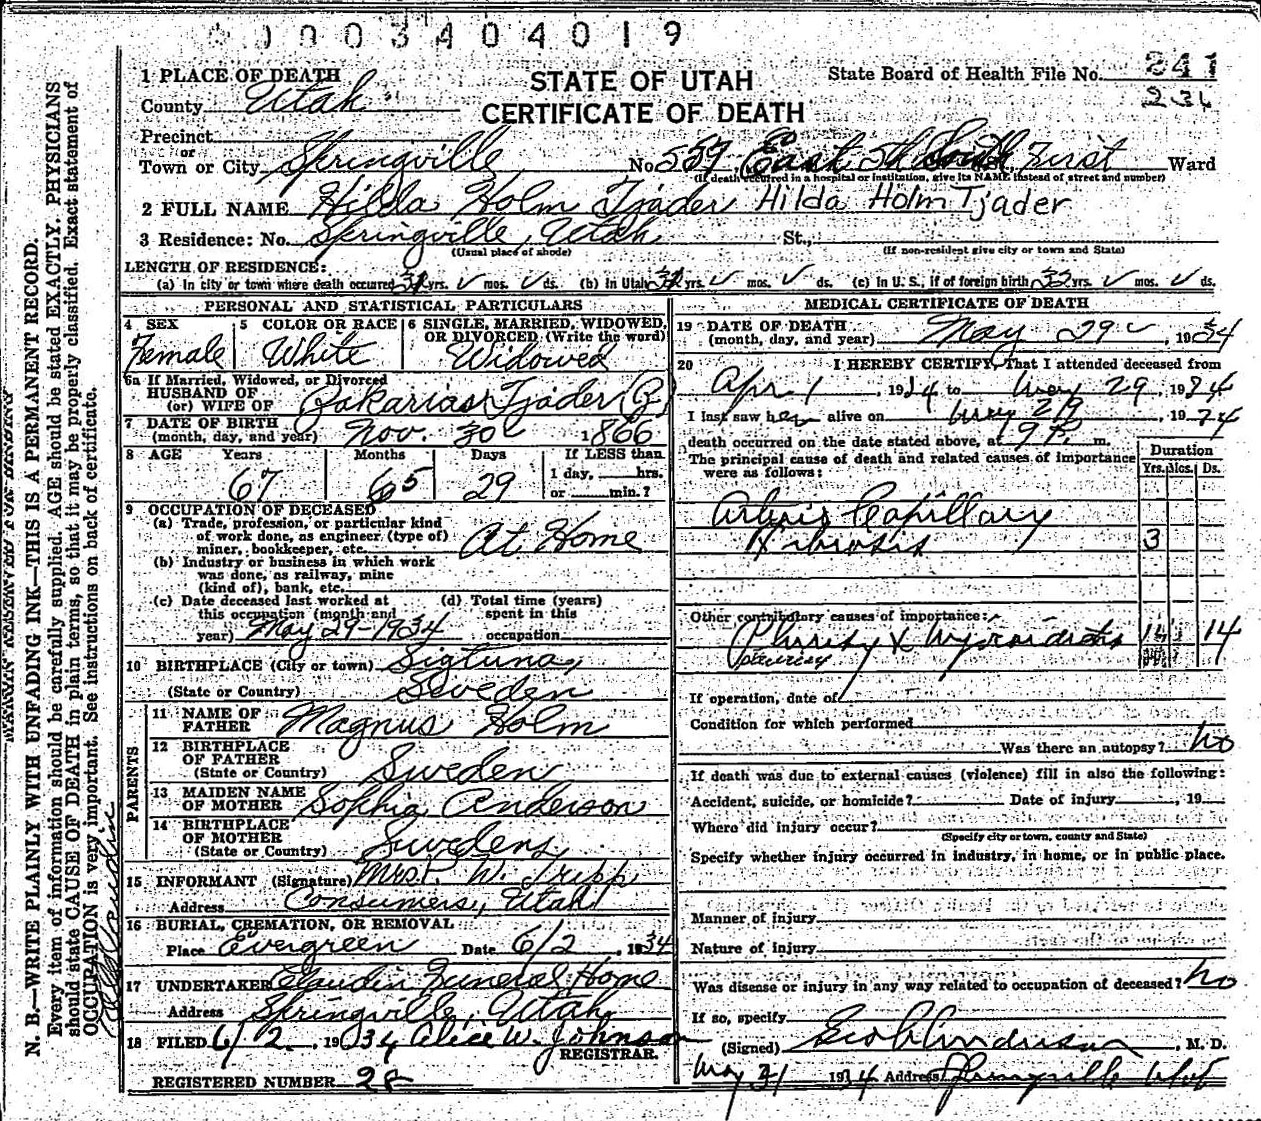 0003404019
1 PLACE OF DEATH
STATE OF UTAH
CERTIFICATE OF DEATH
State Board of Health File No. 241
236
County Utah
Precinct
or
Town or City Springville No. 559 East South First Ward
(If death occurred in a hospital or institution, give its NAME instead of street and number)
2 FULL NAME Hilda Holm Tjader Hilda Holm Tjader
3 Residence: No. Springville, Utah St.,
(Usual place of abode) (If non-resident give city or town and State)
LENGTH OF RESIDENCE:
(a) In city or town where death occurred yrs. mos. ds. (b) In Utah yrs. mos. ds. (c) In U. S., if of foreign birth yrs. mos. ds.
PERSONAL AND STATISTICAL PARTICULARS
4 SEX Female
5 COLOR OR RACE White
6 SINGLE, MARRIED, WIDOWED, OR DIVORCED (Write the word) Widowed
6a If Married, Widowed, or Divorced
HUSBAND OF
(or) WIFE OF Zakarias Tjader
7 DATE OF BIRTH
(month, day, and year) Nov. 30 1866
8 AGE Years Months Days If LESS than
67 5 29 1 day, hrs.
or min.?
9 OCCUPATION OF DECEASED
(a) Trade, profession, or particular kind
of work done, as engineer (type of)
miner, bookkeeper, etc. At Home
(b) Industry or business in which work
was done, as railway, mine
(kind of), bank, etc.
(c) Date deceased last worked at
this occupation (month and
year) May 29-1934
(d) Total time (years)
spent in this
occupation
10 BIRTHPLACE (City or town) Sigtuna,
(State or Country) Sweden
PARENTS
11 NAME OF
FATHER Magnus Holm
12 BIRTHPLACE
OF FATHER
(State or Country) Sweden
13 MAIDEN NAME
OF MOTHER Sophia Anderson
14 BIRTHPLACE
OF MOTHER
(State or Country) Sweden
15 INFORMANT (Signature) Mrs. W. Tripp
Address Consumers, Utah
16 BURIAL, CREMATION, OR REMOVAL
Place Evergreen Date 6/2, 1934
17 UNDERTAKER Claudin Funeral Home
Address Springville, Utah
18 FILED 6/2, 1934 Alice W. Johnson
REGISTRAR.
REGISTERED NUMBER 28
MEDICAL CERTIFICATE OF DEATH
19 DATE OF DEATH
(month, day, and year) May 29, 1934
20 I HEREBY CERTIFY, That I attended deceased from
Apr 1, 1934 to May 29, 1934
I last saw her alive on May 29, 1934
death occurred on the date stated above, at 9 P. m.
The principal cause of death and related causes of importance
were as follows:
Duration
Yrs. Mos. Ds.
Arterio Capillary
Fibrosis 3
Other contributory causes of importance:
Plurisy & Myocarditis 14
pleurisy
If operation, date of
Condition for which performed
Was there an autopsy? no
If death was due to external causes (violence) fill in also the following:
Accident, suicide, or homicide? Date of injury , 19
Where did injury occur?
(Specify city or town, county and State)
Specify whether injury occurred in industry, in home, or in public place.
Manner of injury
Nature of injury
Was disease or injury in any way related to occupation of deceased? no
If so, specify
(Signed) Geo Anderson, M. D.
May 31 1934 Address Springville Utah
N. B.—WRITE PLAINLY WITH UNFADING INK—THIS IS A PERMANENT RECORD.
Every item of information should be carefully supplied. AGE should be stated EXACTLY. PHYSICIANS
should state CAUSE OF DEATH in plain terms, so that it may be properly classified. Exact statement of
OCCUPATION is very important. See instructions on back of certificate.